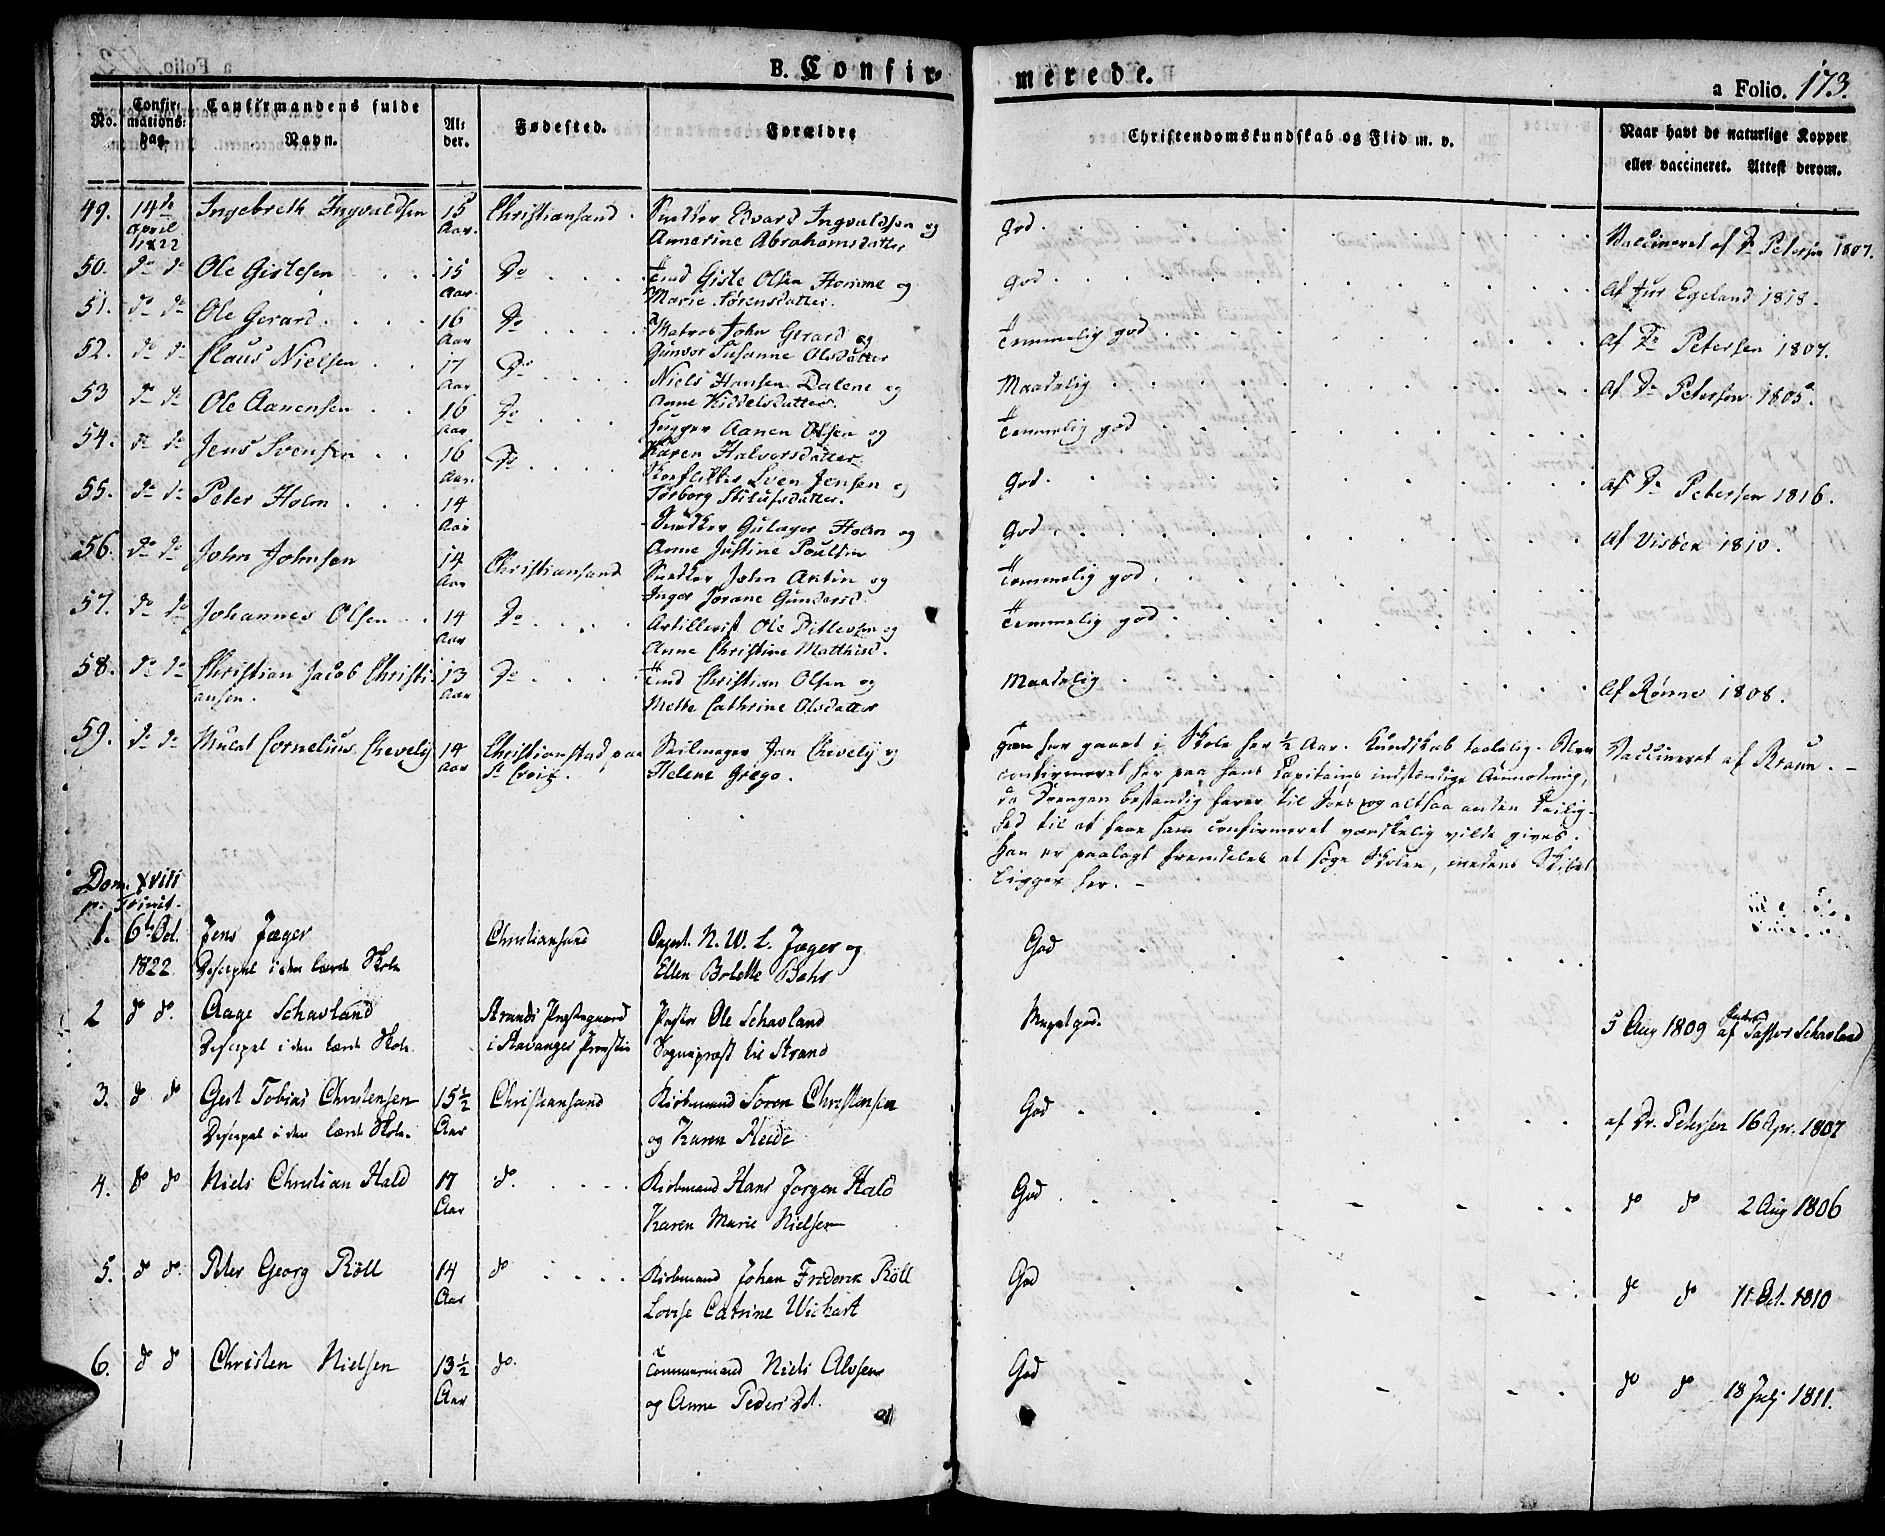 B. Confir-
merede.
a Folio. 173.
No.
Confir-
mations-
dag.
Confirmandens fulde
Navn.
Al-
der.
Fødested.
Forældre
Christendomskundskab og Flid m. v.
Naar havt de naturlige Kopper
eller vaccineret. Attest derom.
49. 14de Ingebreth Ingvaldsen 15 Christiansand. Snedker Edvard Ingvaldsen og
April Aar. Annerine Abrahamsdatter
1822
god. Vaccineret af Dr Petersen 1807.
50. do do Ole Gislesen 15 Do Gisle Olsen Homme og
Aar. Marie Sørensdatter.
god. af Egeland 1818.
51. do do Ole Gerard. 16 Do Matros John Gerard og
Aar Gunvor Susanne Olsdatter
Temmelig god af Dr Petersen 1807.
52. do do Claus Nielsen 17 Do Niels Hansen Dalene og
Aar Anne Kiddelsdatter.
Maadelig af Dr Petersen 1805.
53 do do Ole Aanensen 16 Do Aanen Olsen og
Aar Karen Halvorsdatter
Temmelig god
54. do do Jens Svensen 16 Do Sven Jensen og
Aar. Torborg
god. af Dr Petersen 1816.
55. do do Peter Holm 14 Snedker Gulager Holm og
Aar Anne Justine Poulsen
God. af Visbek 1810.
56. do do John Johnsen 14 Christiansand Snedker John og
Aar Inger Gundersd.
Temmelig god.
57. do do Johannes Olsen 14 Do Artillerist Ole Ditlevsen og
Aar Anne Christine Matthisd.
Temmelig god
58. do do Christian Jacob Christi- 13 Do Christian Olsen og
ansen. Aar Mette Cathrine Olsdatter
Maadelig af Rønne 1808.
59. do do Mulat Cornelius Chevelij 14 Christianstad paa Seilmager Jan Chevelij og
Aar St Croix. Helene Grego.
Han har gaaet i Skole her ½ Aar. Kundskab taalelig. Blev
confirmeret her paa hans Capitains indstændige Anmodning,
da Drengen bestandig farer til Søes og altsaa anden Leilig-
hed til at faae ham confirmeret vanskelig vilde gives.
Han er paalagt fremdeles at søge Skolen, imedens Skibet
ligger her. -
Vaccineret af Kraun. -
Dom. XVIII
p. Trinit.
1. 6te Oct. Jens Jæger Christiansand N. W. L. Jæger og
1822 Discipel i den lærde Skole Ellen Bolette Bahr
God
2 do do. Aage Schavland Strands Præstegaard Pastor Ole Schavland
Discipel i den lærde Skole i Stavanger Provstie Sognepræst til Strand
Meget god. 5 Aug 1809 af Pastor Schavland
3. do do Gert Tobias Christensen 15½ Christiansand Kiøbmand Søren Christensen
Discipel i den lærde Skole. Aar og Karen Heide
God af Dr. Petersen 16 Apr. 1807
4. do do Niels Christian Hald 17 do. Kiøbmand Hans Jørgen Hald
Aar Karen Marie Nielsen
God do do 2 Aug 1806
5. do do. Peter Georg Röll 14 do Kiøbmand Johan Frederik Röll
Aar Lovise Catrine Wichart
God do do 11 Oct. 1810
6. do do Christen Nielsen 13½ do. Tømmermand Niels Alvsen
Aar og Anne Peders Dt.
God do do 18 Julj 1811.